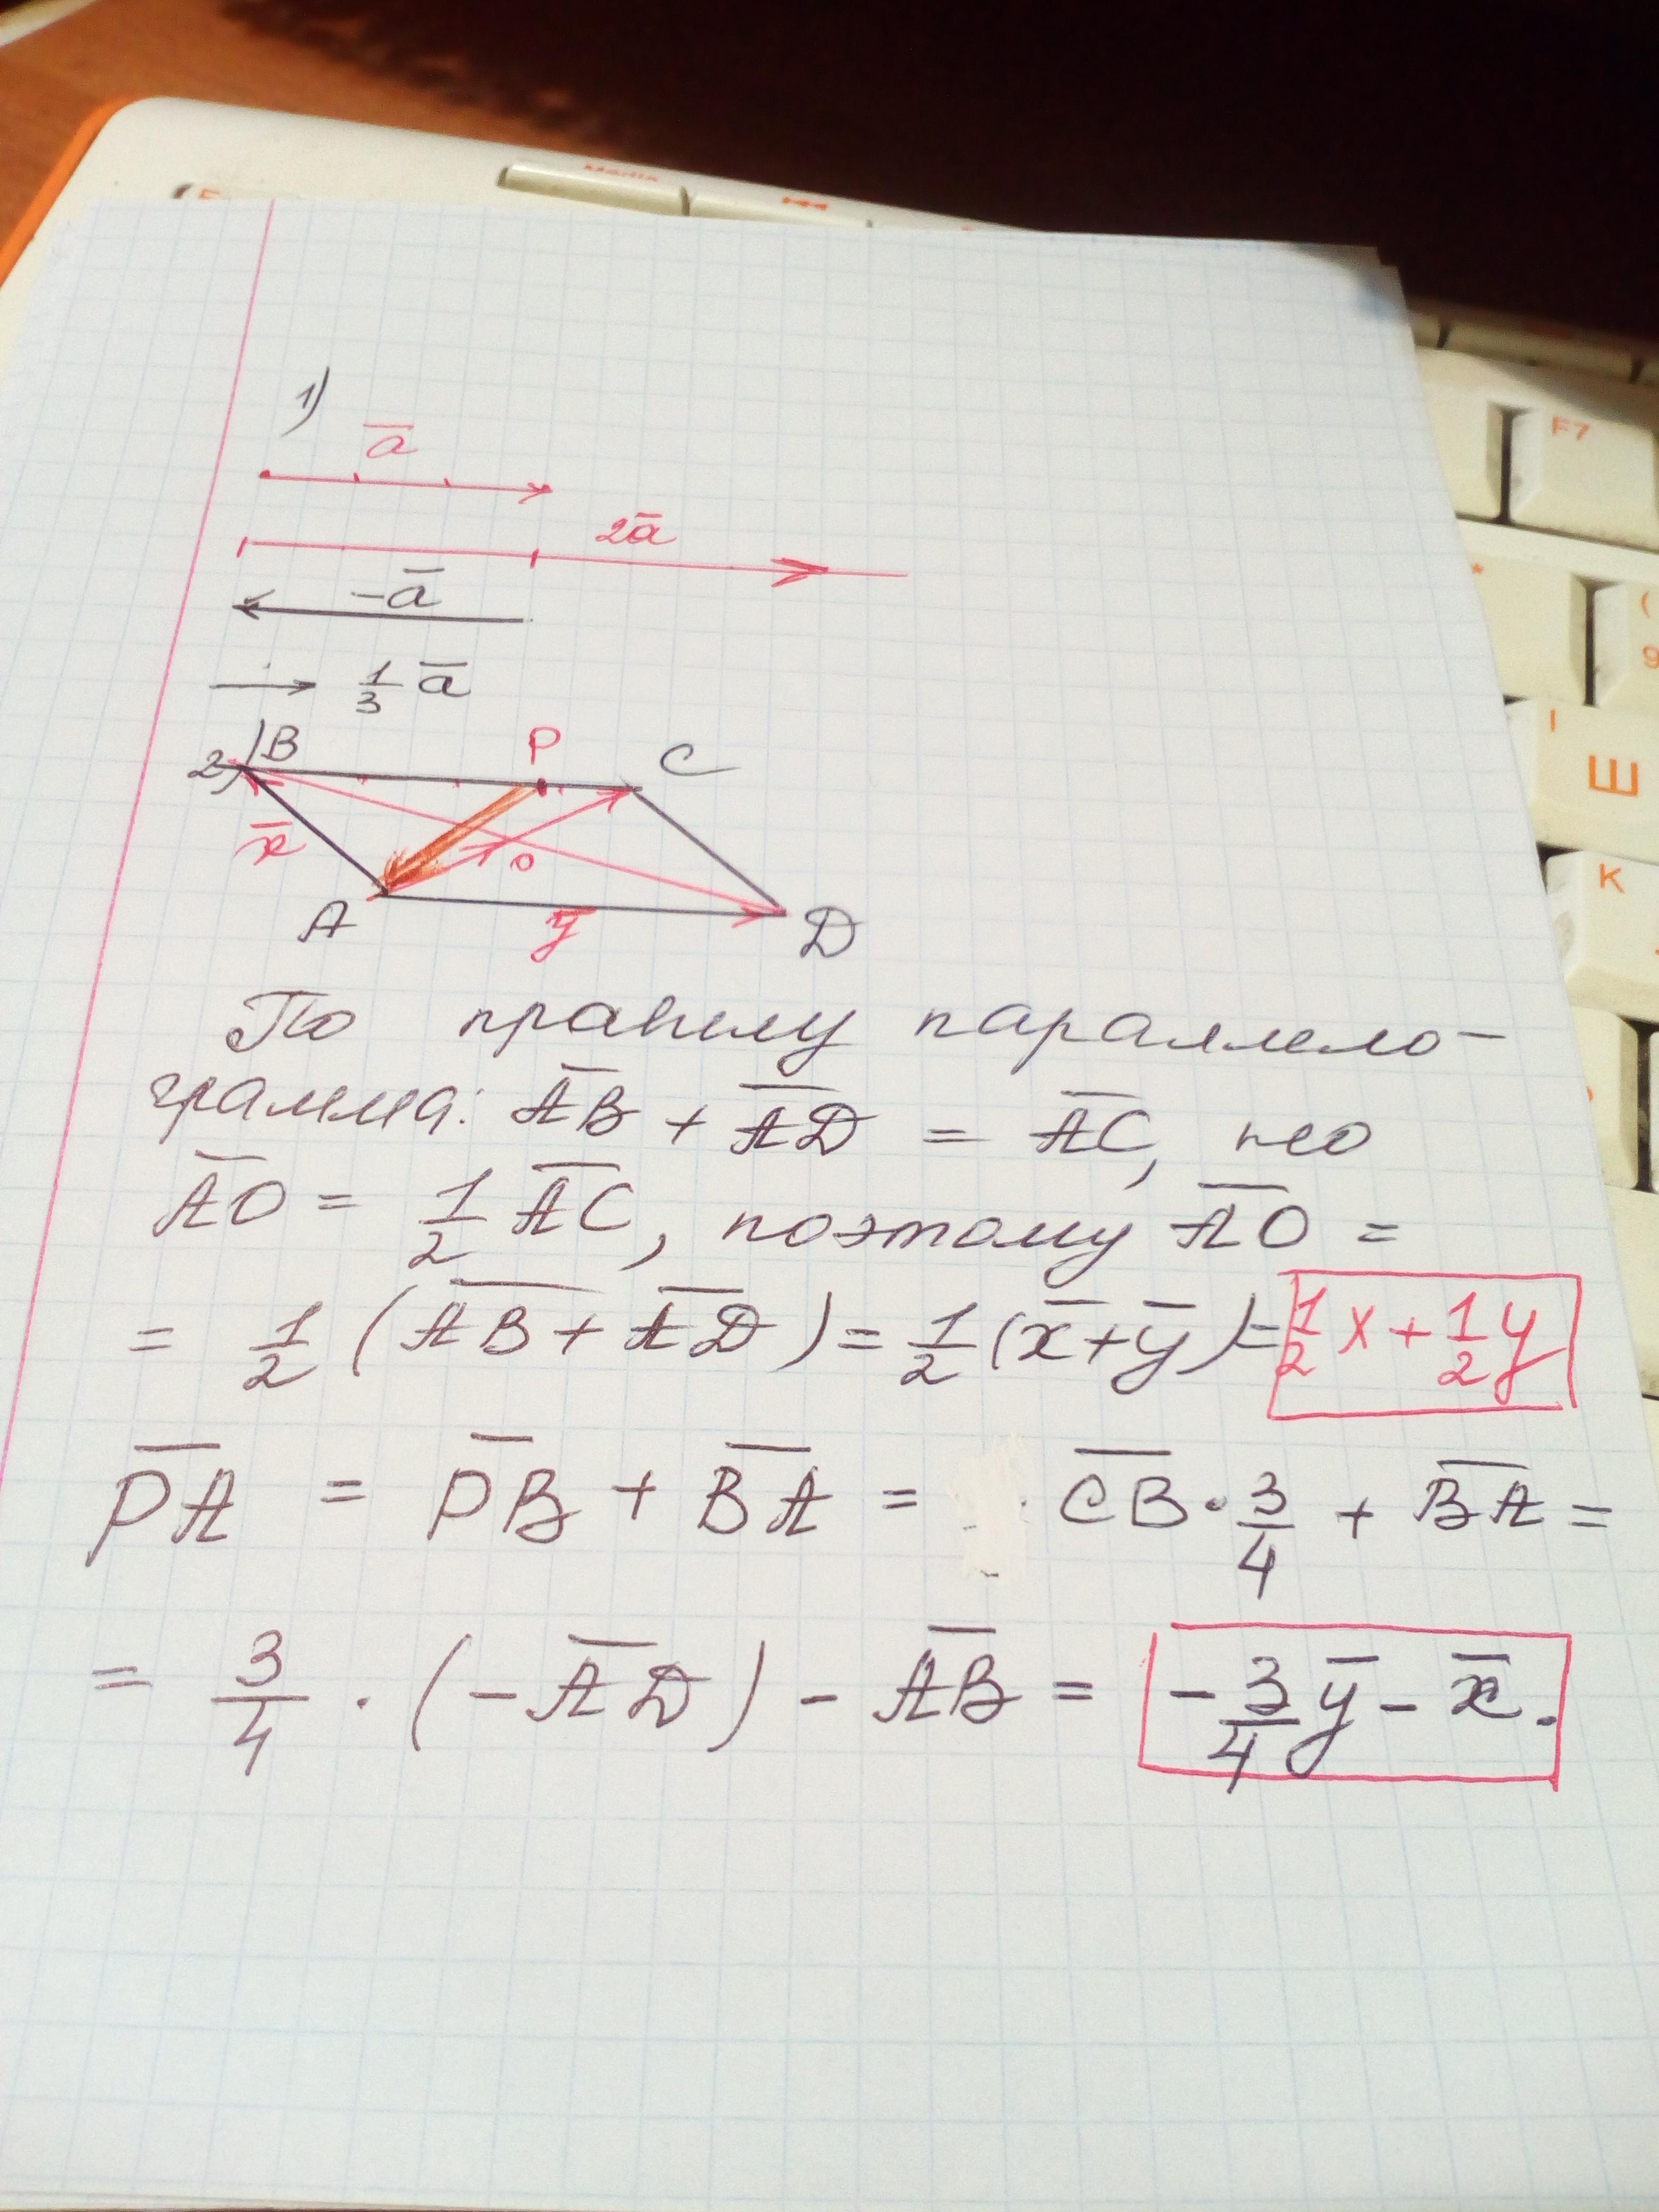 1)
a̅
2a̅
-a̅
1/3 a̅
2) B P C
x̅ o
A y̅ D
По правилу параллело-
грамма: A̅B̅ + A̅D̅ = A̅C̅, но
A̅O̅ = 1/2 A̅C̅, поэтому A̅O̅ =
= 1/2 (A̅B̅ + A̅D̅) = 1/2 (x̅ + y̅) = 1/2 x + 1/2 y
P̅A̅ = P̅B̅ + B̅A̅ = C̅B̅ · 3/4 + B̅A̅ =
= 3/4 · (-A̅D̅) - A̅B̅ = -3/4 y̅ - x̅.
F7
*
(
9
I
Ш
К